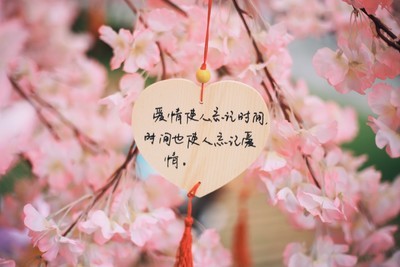 爱情使人忘记时间，
时间也使人忘记爱
情。